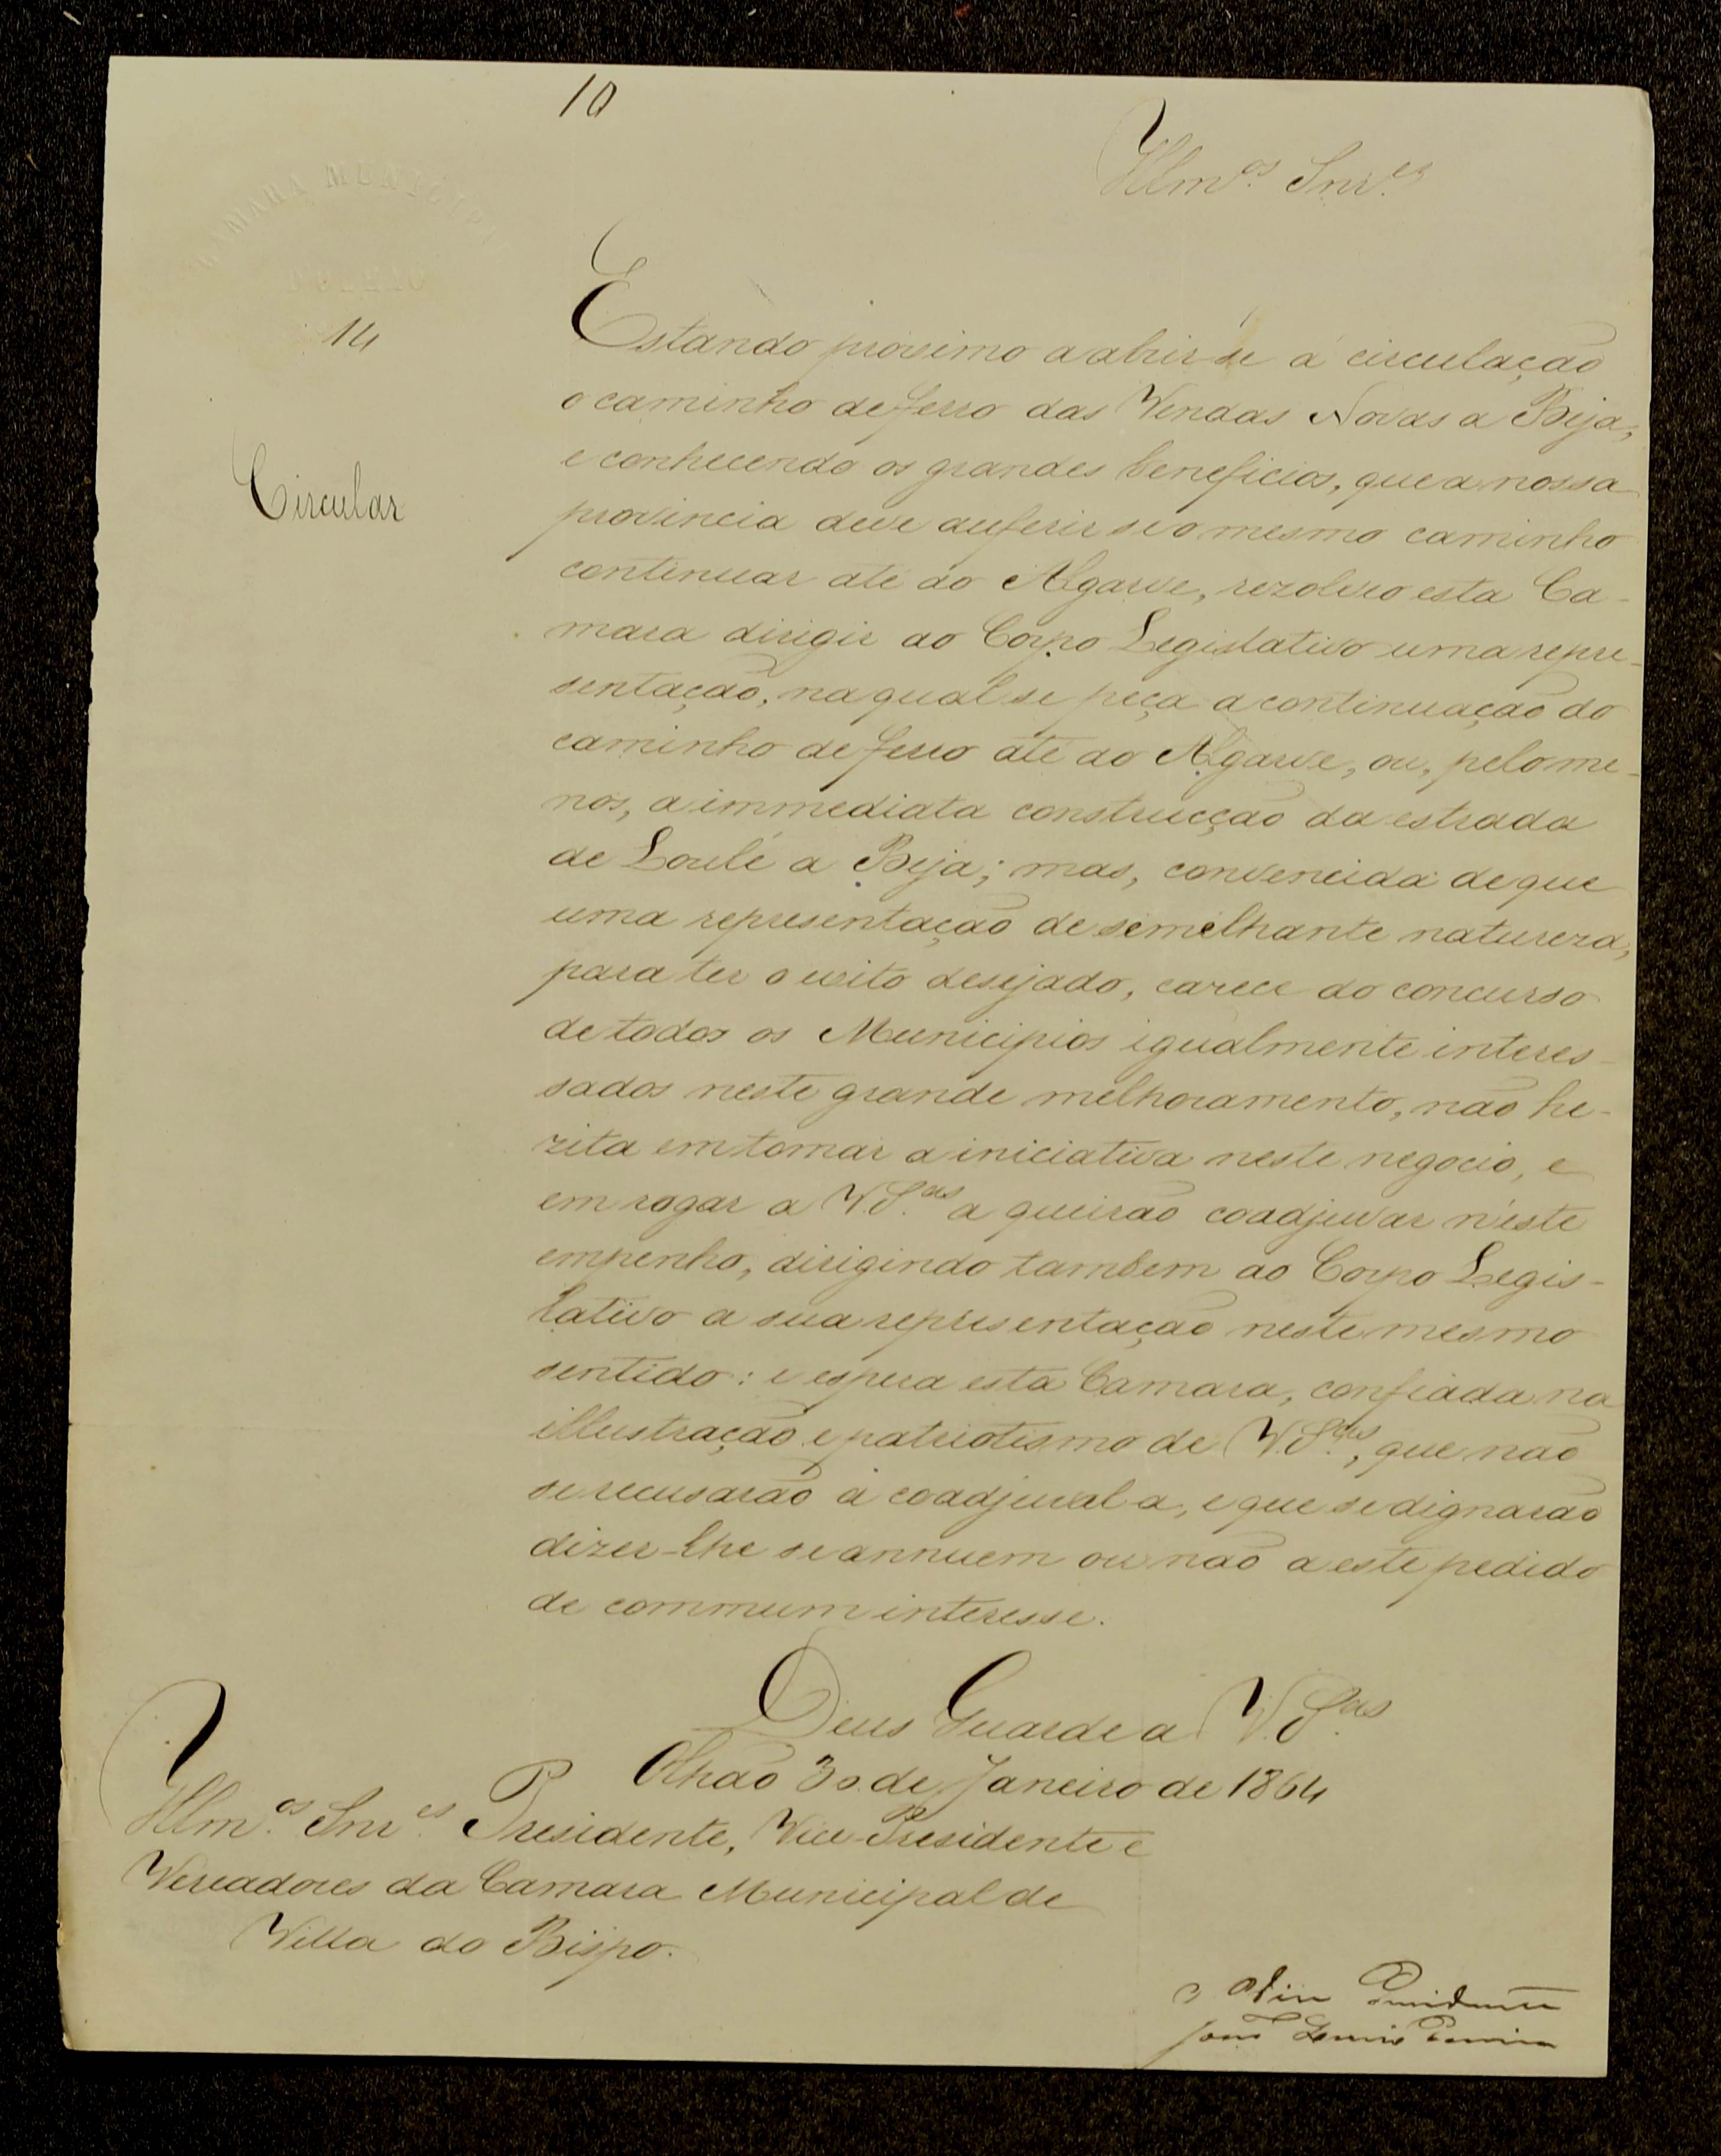 10
Illm.os Snr.es
CAMARA MUNICIPAL
14
Estando proximo a abrir se á circulação
o caminho de ferro das Vendas Novas a Beja,
e conhecendo os grandes beneficios, que a nossa
Circular
provincia deve auferir se o mesmo caminho
continuar até ao Algarve, rezolveo esta Ca-
mara dirigir ao Corpo Legislativo uma repre-
sentação, na qual se peça a continuação do
caminho de ferro até ao Algarve, ou, pelo me-
nos, a immediata construcção da estrada
de Loulé a Beja; mas, convencida de que
uma representação de semelhante natureza,
para ter o exito desejado, carece do concurso
de todos os Municipios igualmente interes-
sados neste grande melhoramento, não he-
zita em tomar a iniciativa neste negocio, e
em rogar a V. S.as a queirão coadjuvar n'este
empenho, dirigindo tambem ao Corpo Legis-
lativo a sua representação neste mesmo
sentido: e espera esta Camara, confiada na
illustração e patriotismo de V. S.as, que não
se recusarão a coadjuval-a, e que se dignarão
dizer-lhe se annuem ou não a este pedido
de commum interesse.
Deus Guarde a V. S.as
Olhão 30 de Janeiro de 1864
Illm.os Snr.es Presidente, Vice-Presidente e
Vereadores da Camara Municipal de
Villa do Bispo.
O Vice Presidente